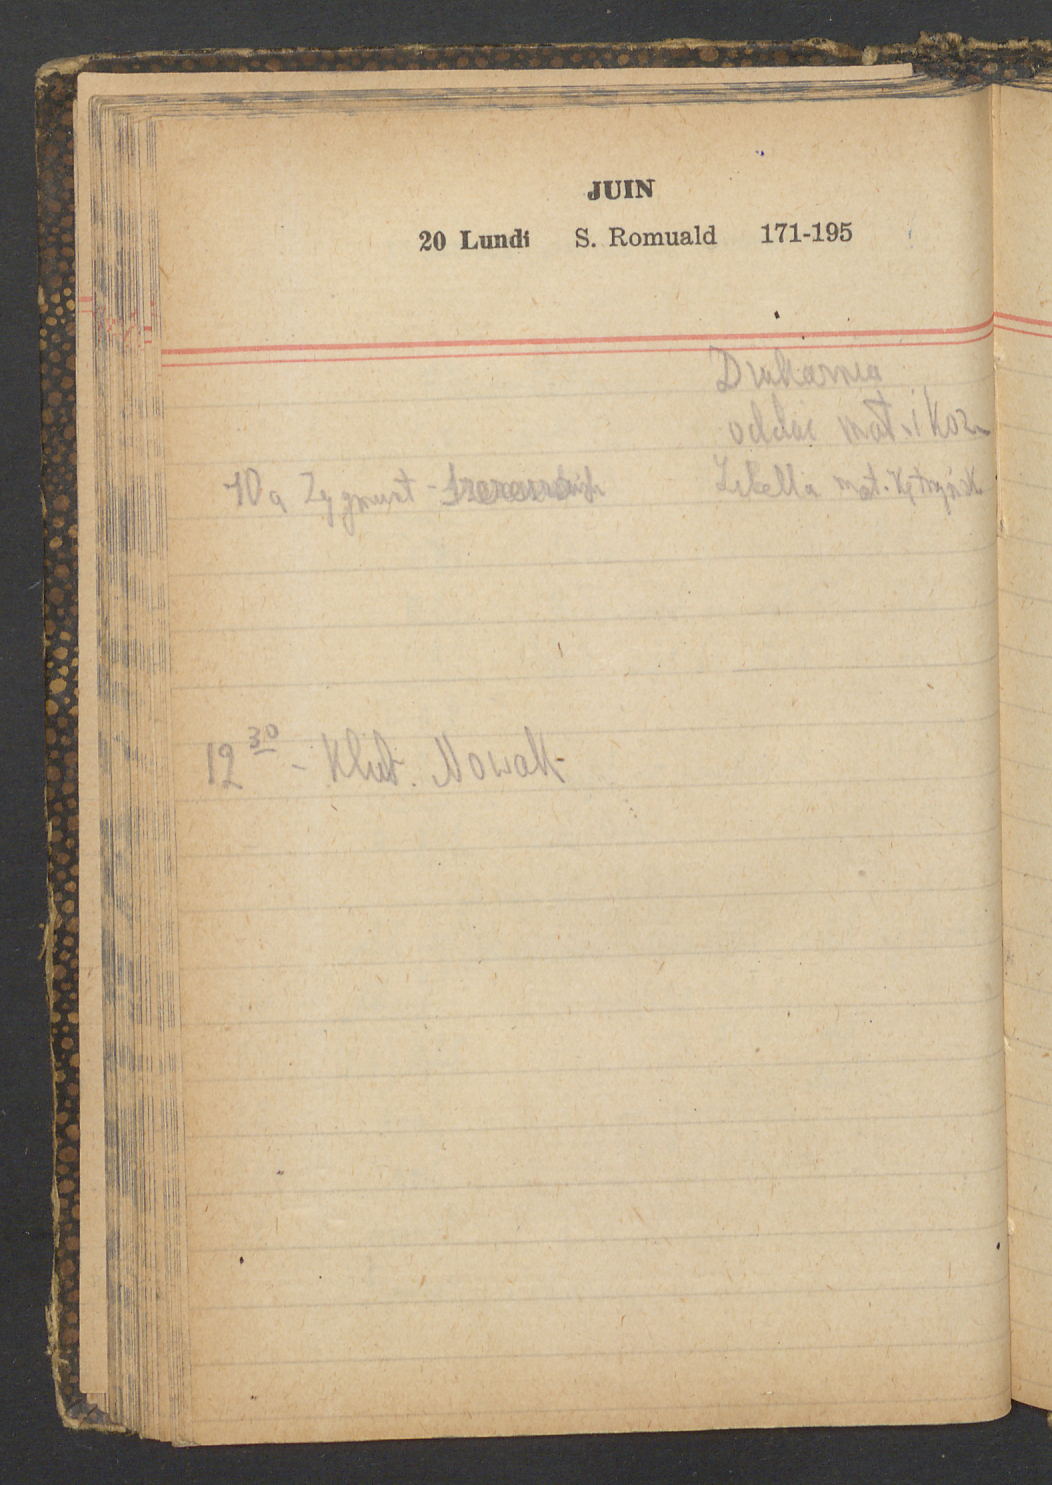 JUIN
20 Lundi S. Romuald 171-195
Drukarnia
oddać mat. i Kor.
10 a Zygmunt -
Libella mat. Kętrzyńsk
12 30 - Klub. Nowak